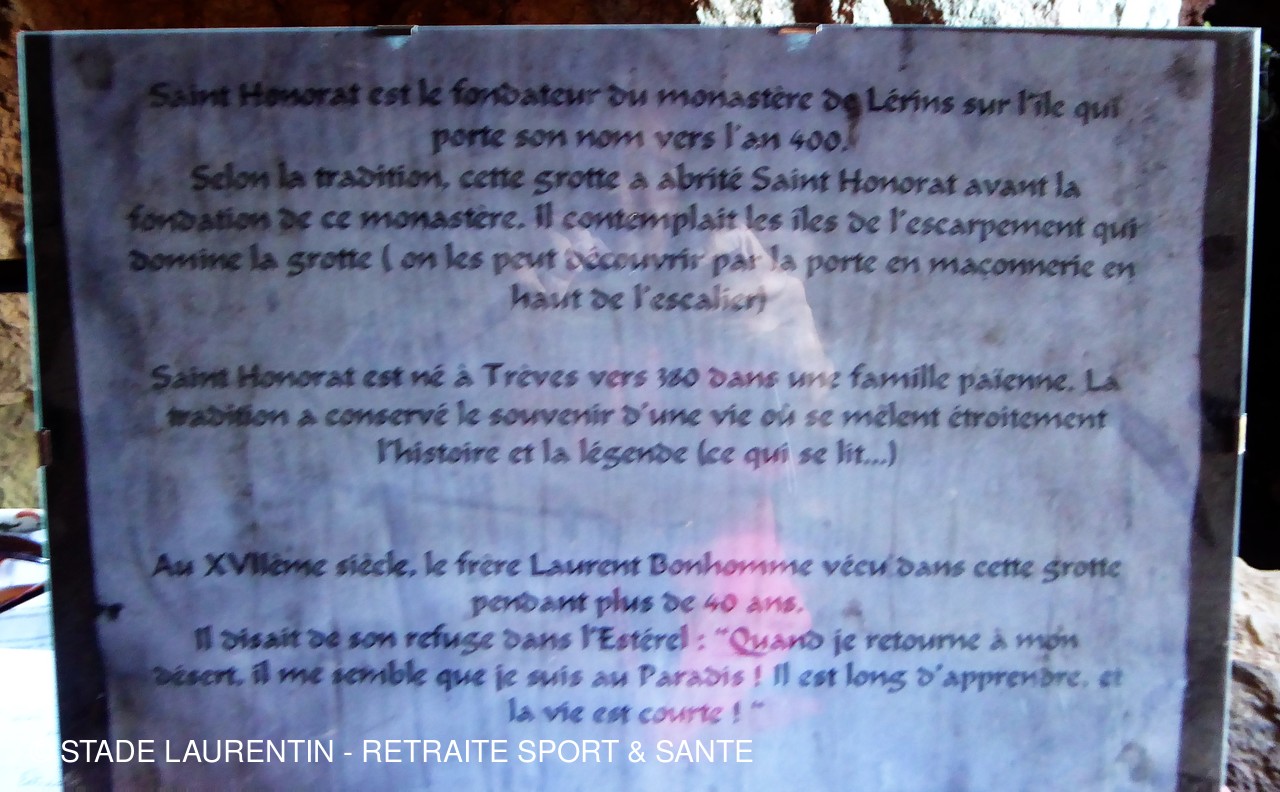 Saint Honorat est le fondateur du monastère de Lérins sur l'île qui
porte son nom vers l'an 400.
Selon la tradition, cette grotte a abrité Saint Honorat avant la
fondation de ce monastère. Il contemplait les îles de l'escarpement qui
domine la grotte ( on les peut découvrir par la porte en maçonnerie en
haut de l'escalier)
Saint Honorat est né à Trèves vers 380 dans une famille païenne. La
tradition a conservé le souvenir d'une vie où se mêlent étroitement
l'histoire et la légende (ce qui se lit...)
Au XVIIème siècle, le frère Laurent Bonhomme vécu dans cette grotte
pendant plus de 40 ans.
Il disait de son refuge dans l'Estérel : "Quand je retourne à mon
désert, il me semble que je suis au Paradis ! Il est long d'apprendre, et
la vie est courte ! "
STADE LAURENTIN - RETRAITE SPORT & SANTE